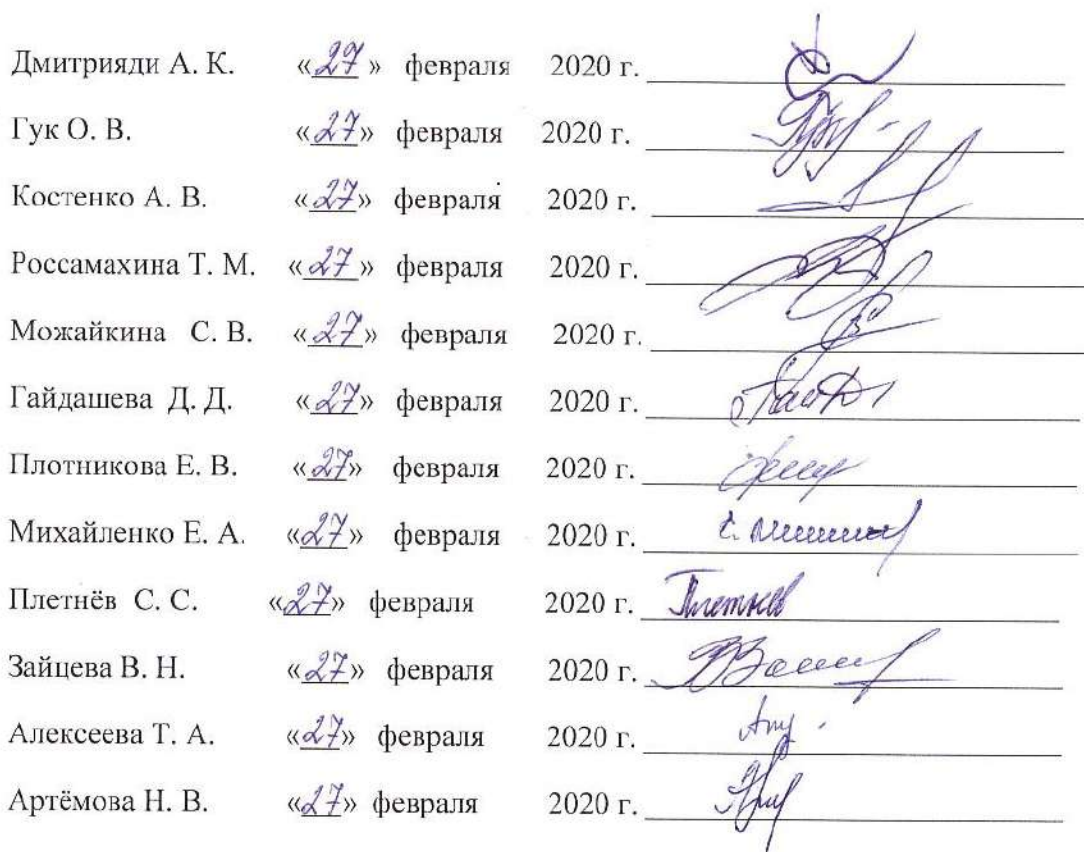 Дмитрияди А. К. «27» февраля 2020 г.
Гук О. В. «27» февраля 2020 г.
Костенко А. В. «27» февраля 2020 г.
Россамахина Т. М. «27» февраля 2020 г.
Можайкина С. В. «27» февраля 2020 г.
Гайдашева Д. Д. «27» февраля 2020 г.
Плотникова Е. В. «27» февраля 2020 г.
Михайленко Е. А. «27» февраля 2020 г.
Плетнёв С. С. «27» февраля 2020 г. Плетнев
Зайцева В. Н. «27» февраля 2020 г.
Алексеева Т. А. «27» февраля 2020 г.
Артёмова Н. В. «27» февраля 2020 г.